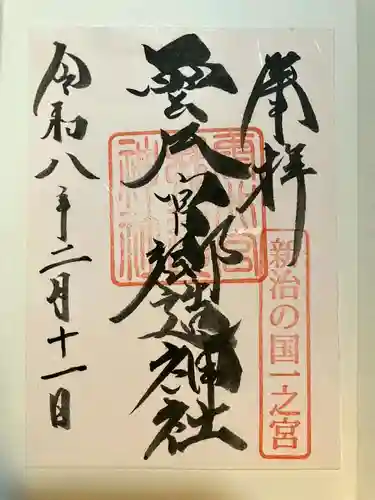 奉拝
新治の国一之宮
雲井宮郷造神社
令和八年二月十一日